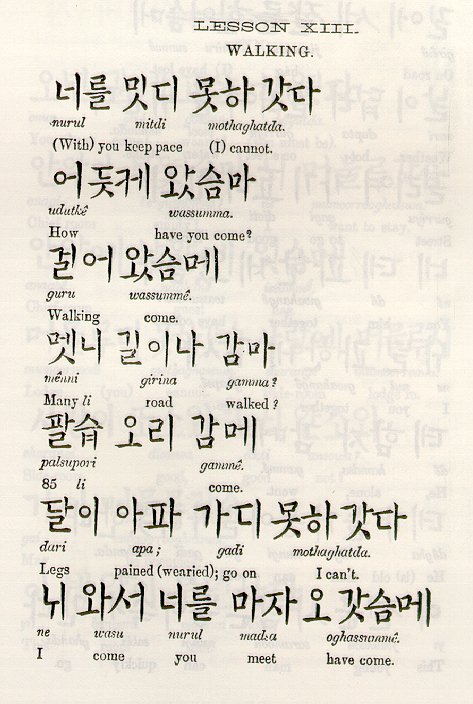 LESSON XIII.
WALKING.
너를 밋디 못하 갓다
nurul mitdi mothaghatda.
(With) you keep pace (I) cannot.
어둣케 왓슴마
udutkê wassumma.
How have you come?
걸어 왓슴메
guru wassummê.
Walking come.
멧니 길이나 감마
mênni girina gamma?
Many li road walked?
팔습 오리 감메
palsupori gammê.
85 li come.
달이 아파 가디 못하 갓다
dari apa; gadi mothaghatda.
Legs pained (wearied); go on I can't.
뉘 와서 너를 마자 오 갓슴메
ne wasu nurul madza oghassummê.
I come you meet have come.